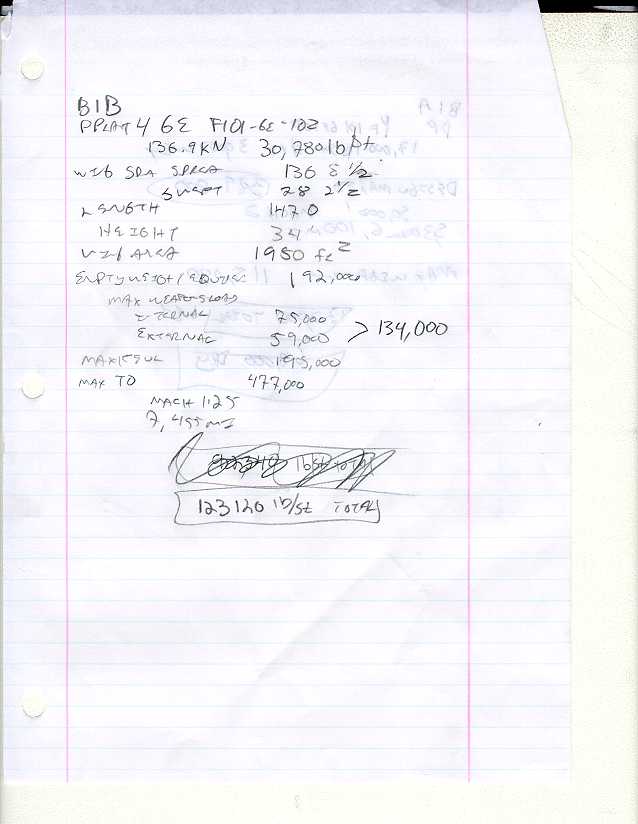 B1B
PPLANT 4 GE F101-GE-102
136.9KN 30,780 lb/st.
WING SPA SPREA 136 8 1/2
SWEPT 78 2 1/2
LENGTH 147 0
HEIGHT 34
WING AREA 1950 ft2
EMPTY WEIGHT/ 192,000
MAX WEAPONSLOAD
INTERNAL 75,000
EXTERNAL 59,000 > 134,000
MAX FUEL 195,000
MAX TO 477,000
MACH 1.25
7,455 MI
123120 lb/st TOTAL